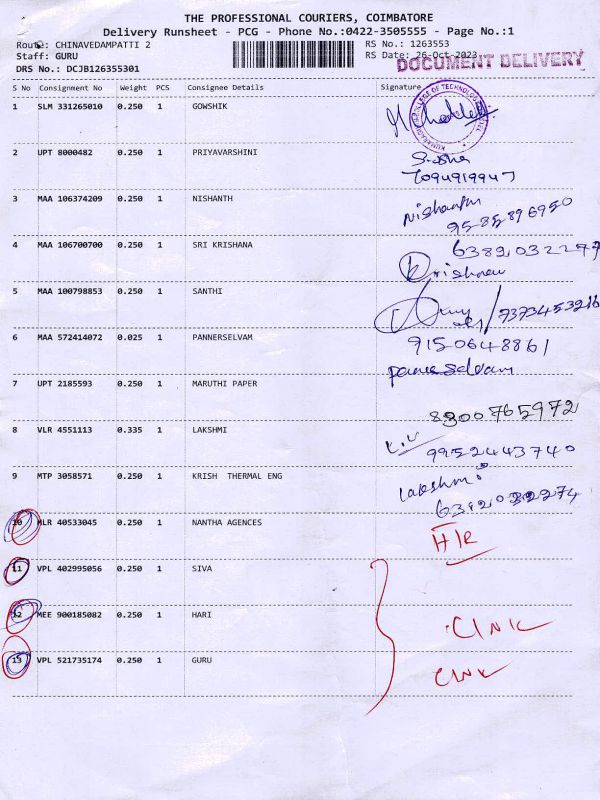 THE PROFESSIONAL COURIERS, COIMBATORE
Delivery Runsheet - PCG - Phone No.:0422-3505555 - Page No.:1
Route: CHINAVEDAMPATTI 2
Staff: GURU
DRS No.: DCJB126355301
RS No.: 1263553
RS Date: 26-Oct-2023
DOCUMENT DELIVERY
S No Consignment No Weight PCS Consignee Details Signature
1 SLM 331265010 0.250 1 GOWSHIK
2 UPT 8000482 0.250 1 PRIYAVARSHINI
7094919947
3 MAA 106374209 0.250 1 NISHANTH Nishanth
9585896950
4 MAA 106700700 0.250 1 SRI KRISHANA 6382032277
Krishnan
5 MAA 100798853 0.250 1 SANTHI 7373453216
6 MAA 572414072 0.025 1 PANNERSELVAM 9150648861
7 UPT 2185593 0.250 1 MARUTHI PAPER
8300765972
8 VLR 4551113 0.335 1 LAKSHMI 9952443740
9 MTP 3058571 0.250 1 KRISH THERMAL ENG Lakshmi
10 MLR 40533045 0.250 1 NANTHA AGENCES
11 VPL 402995056 0.250 1 SIVA
12 MEE 900185082 0.250 1 HARI
13 VPL 521735174 0.250 1 GURU